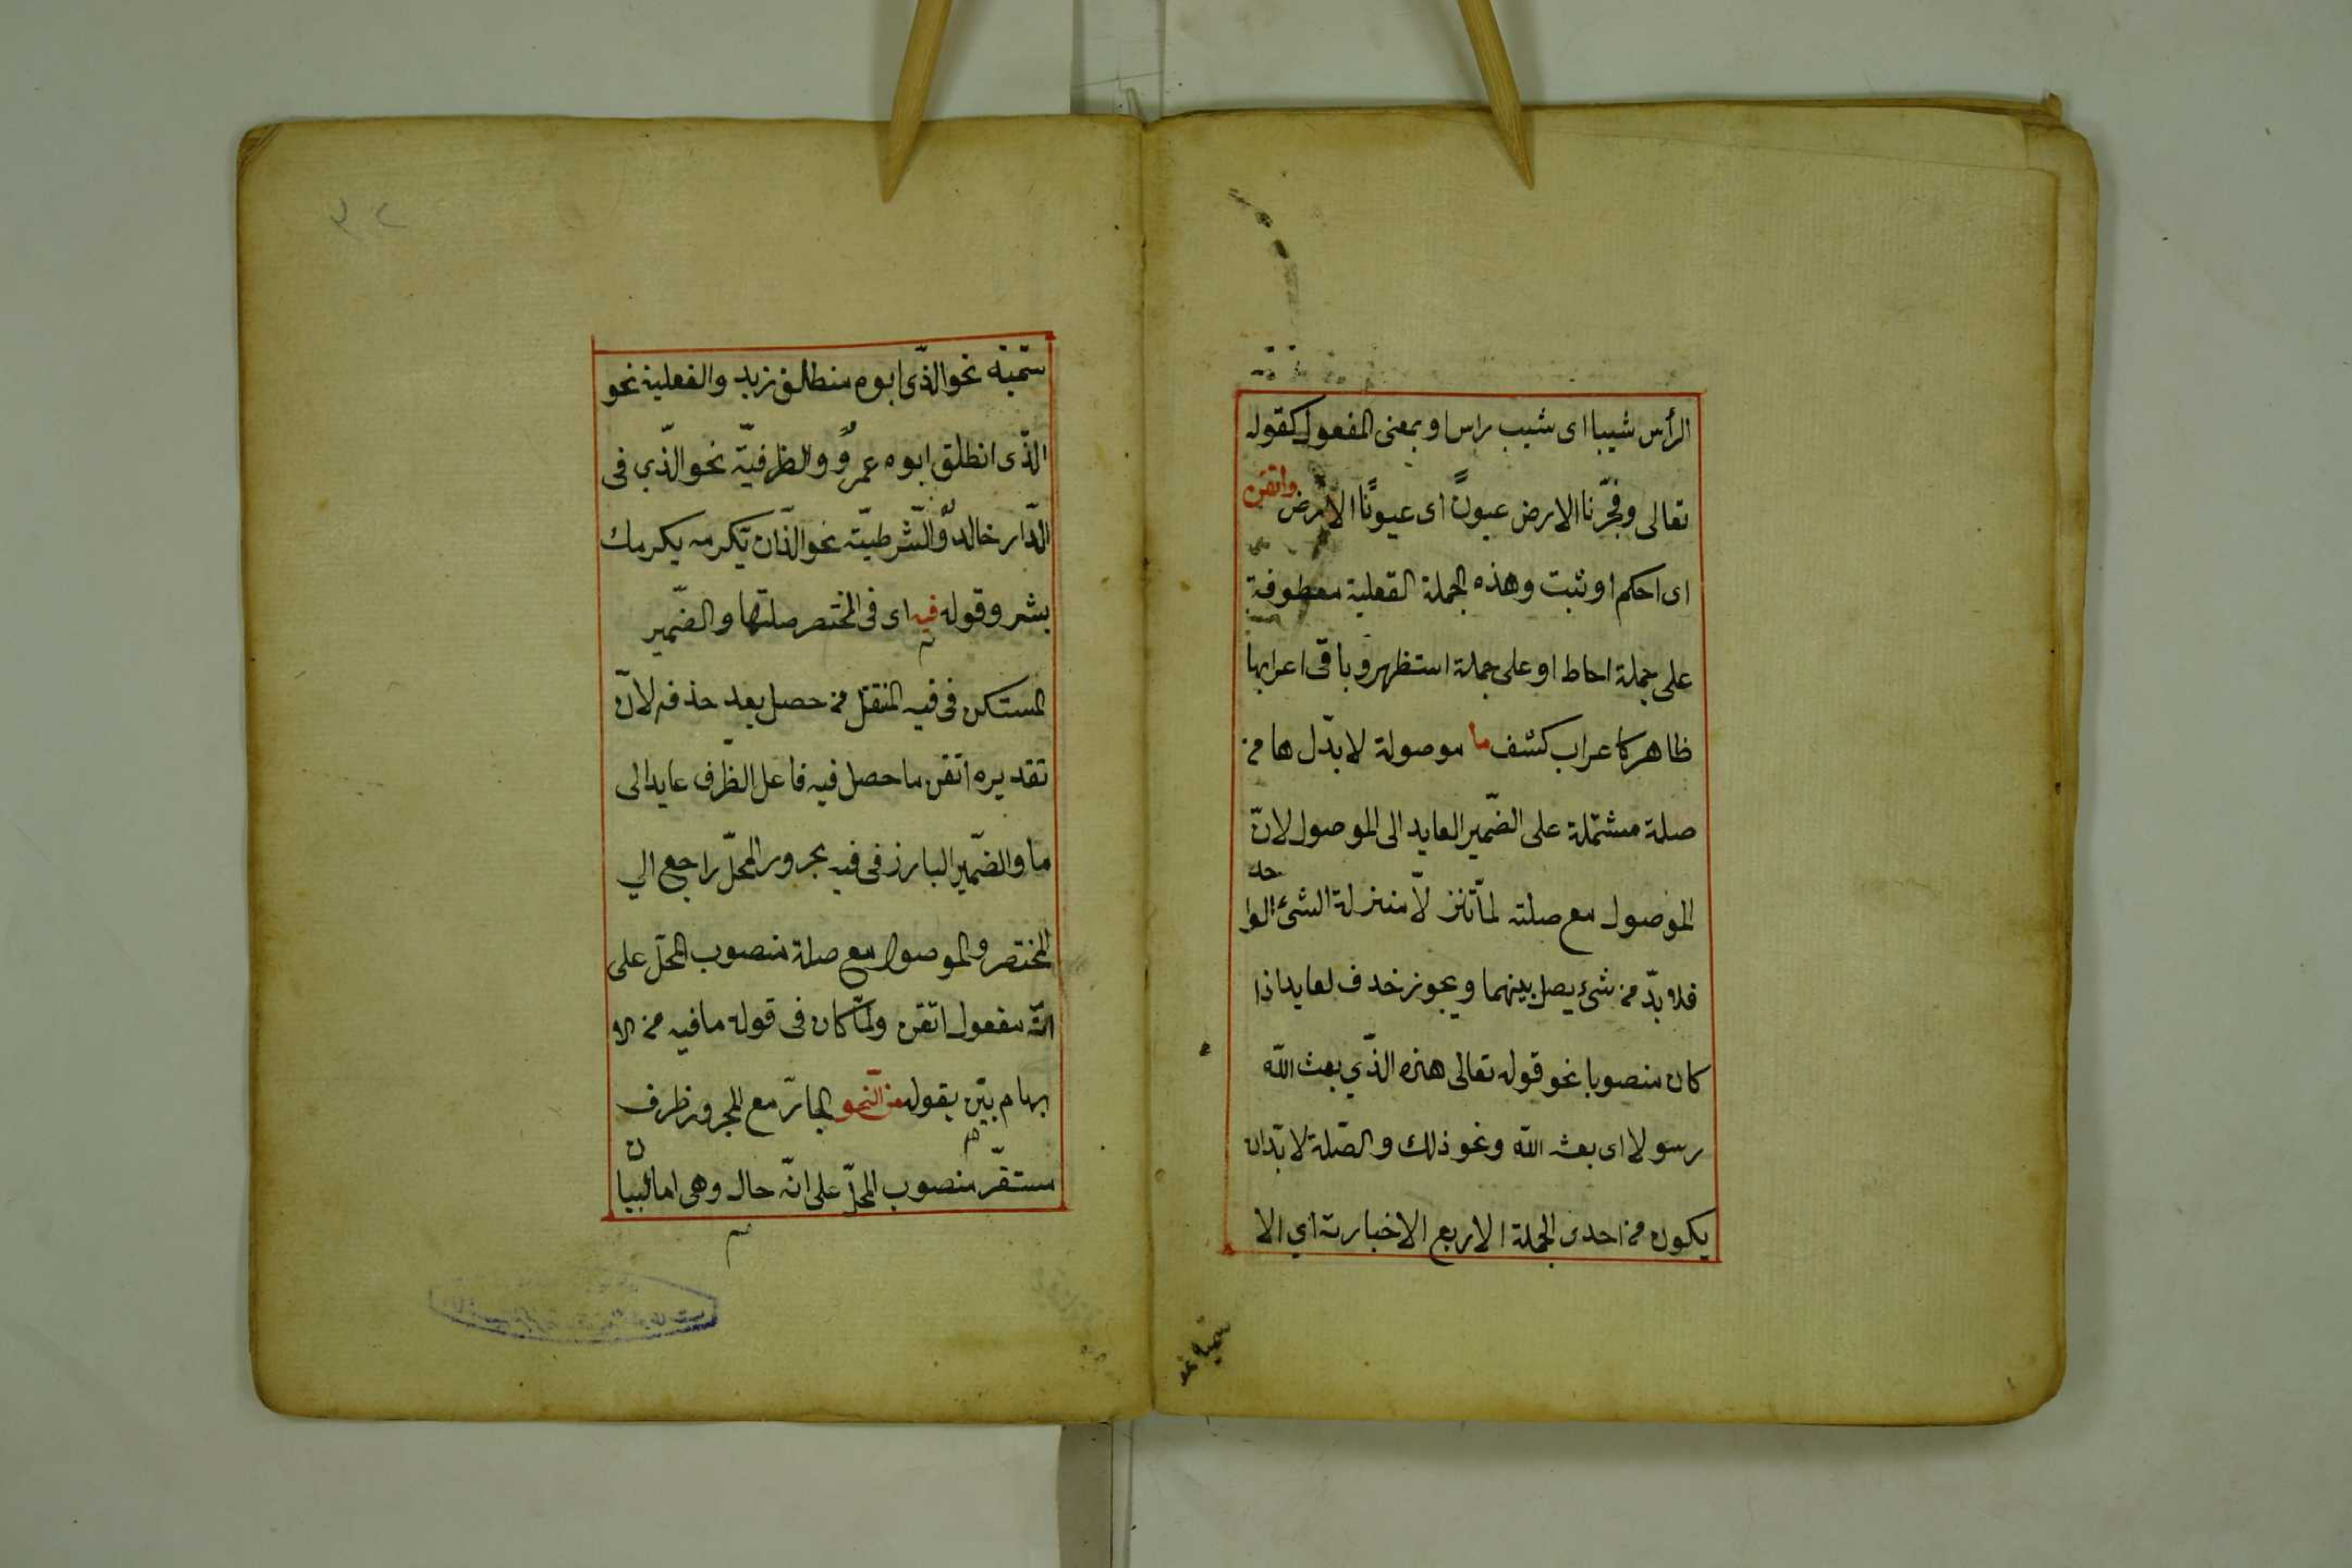 الرأس شيبا اى شيب راس او بمعنى المفعول كقوله
تعالى وفجّرنا الارض عيونً اى عيونًا الارض واتقن
اى احكم او ثبت وهذه الجملة الفعلية معطوفة
على جملة احاط او على جملة استظهر و باقى اعرابها
ظاهر كاعراب كشف ما موصولة لا بدّ لها من
صلة مشتملة على الضّمير العايد الى الموصول لانّ
الموصول مع صلته لمّا تنزّلا منزلة الشئ الواحد
فلا بدّ من شئ يصل بينهما ويجوز حذف لعايد اذا
كان منصوبا نحو قوله تعالى هذه الذّي بعث اللّه
رسولا اى بعثه اللّه ونحو ذلك والصّلة لا بدّ ان
يكون من احدى الجملة الاربع الاخبارية اي الا
سميّة نحو الذّى ابوه منطلق زيد والفعلية نحو
الذّى انطلق ابوه عمروٌ والظرفيّة نحو الذّي فى
الدّار خالدٌ والشّرطيّة نحو الذّ ان تكرمه يكرمك
بشر وقوله فيه اى فى المختصر صلتها والضّمير
المستكن فى فيه المنتقل من حصل بعد حذفه لانّ
تقديره اتقن ما حصل فيه فاعل الظّرف عايد الى
ما والضّمير البارز فى فيه مجرور المحلّ راجع الي
المختصر والموصول مع صلة منصوب المحلّ على
انّه مفعول اتقن ولمّا كان فى قوله ما فيه من الا
بهام بيّن بقوله من النّحو الجارّ مع المجرور ظرف
مستقرّ منصوب المحلّ على انّه حال وهى اما لبيان